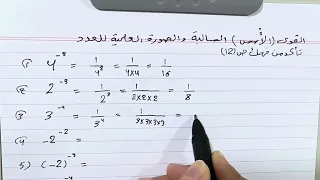 القوى (الأسس) السالبة والصورة العلمية للعدد
تأكد من فهمك ص(12)
1) 4⁻² = 1/4² = 1/4×4 = 1/16
2) 2⁻³ = 1/2³ = 1/2×2×2 = 1/8
3) 3⁻⁴ = 1/3⁴ = 1/3×3×3×3 = 1
4) -2⁻² =
5) (-2)⁻³ =